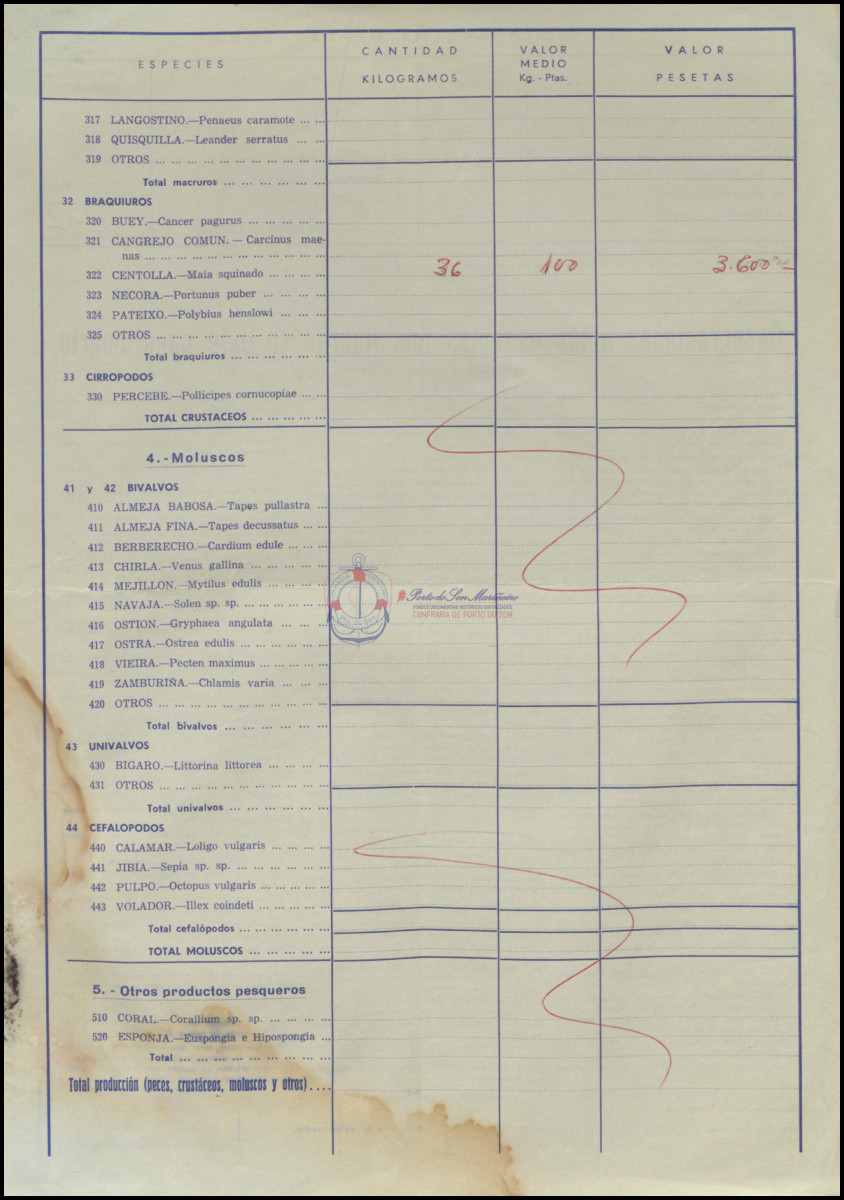 ESPECIES
CANTIDAD
KILOGRAMOS
VALOR
MEDIO
Kg. - Ptas.
VALOR
PESETAS
317 LANGOSTINO.—Penaeus caramote ... ...
318 QUISQUILLA.—Leander serratus ... ...
319 OTROS ... ... ... ... ... ... ... ... ... ... ...
Total macruros ... ... ... ... ... ...
32 BRAQUIUROS
320 BUEY.—Cancer pagurus ... ... ... ... ...
321 CANGREJO COMUN. — Carcinus mae-
nas ... ... ... ... ... ... ... ... ... ... ...
322 CENTOLLA.—Maia squinado ... ... ... ... 36 100 3.600
323 NECORA.—Portunus puber ... ... ... ...
324 PATEIXO.—Polybius henslowi ... ... ...
325 OTROS ... ... ... ... ... ... ... ... ... ... ...
Total braquiuros ... ... ... ... ... ...
33 CIRROPODOS
330 PERCEBE.—Pollicipes cornucopiae ... ...
TOTAL CRUSTACEOS ... ... ... ... ...
4. - Moluscos
41 y 42 BIVALVOS
410 ALMEJA BABOSA.—Tapes pullastra ...
411 ALMEJA FINA.—Tapes decussatus ... ...
412 BERBERECHO.—Cardium edule ... ... ...
413 CHIRLA.—Venus gallina ... ... ... ... ...
414 MEJILLON.—Mytilus edulis ... ... ... ...
415 NAVAJA.—Solen sp. sp. ... ... ... ... ... ...
416 OSTION.—Gryphaea angulata ... ... ...
417 OSTRA.—Ostrea edulis ... ... ... ... ... ...
418 VIEIRA.—Pecten maximus ... ... ... ... ...
419 ZAMBURIÑA.—Chlamis varia ... ... ...
420 OTROS ... ... ... ... ... ... ... ... ... ... ...
Total bivalvos ... ... ... ... ... ... ...
43 UNIVALVOS
430 BIGARO.—Littorina littorea ... ... ... ...
431 OTROS ... ... ... ... ... ... ... ... ... ... ...
Total univalvos ... ... ... ... ... ...
44 CEFALOPODOS
440 CALAMAR.—Loligo vulgaris ... ... ... ...
441 JIBIA.—Sepia sp. sp. ... ... ... ... ... ...
442 PULPO.—Octopus vulgaris ... ... ... ... ...
443 VOLADOR.—Illex coindeti ... ... ... ... ...
Total cefalópodos ... ... ... ... ... ...
TOTAL MOLUSCOS ... ... ... ... ...
5. - Otros productos pesqueros
510 CORAL.—Corallium sp. sp. ... ... ... ...
520 ESPONJA.—Euspongia e Hipospongia ...
Total ... ... ... ... ... ... ... ... ... ...
Total producción (peces, crustáceos, moluscos y otros) . . . .
#Porto do Son Mariñeiro
FONDOS DOCUMENTAIS HISTÓRICOS DIXITALIZADOS
CONFRARÍA DE PORTO DO SON